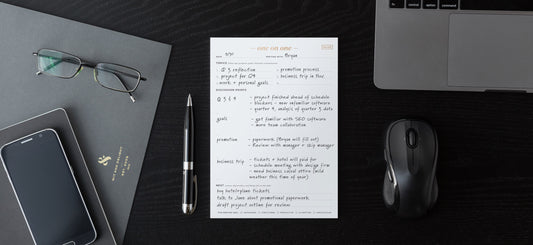 one on one
Bryan
TOPICS
- Q 3 reflection
- promotion process
- project for Q4
- business trip in Dec
- work + personal goals
DISCUSSION POINTS
Q 3 & 4
- project finished ahead of schedule
- blockers - new unfamiliar software
- quarter 4, analysis of quarter 3 data
goals
- get familiar with SEO software
- more team collaboration
promotion
- paperwork (Bryan will fill out)
- Review with manager + skip manager
business trip
- tickets + hotel will paid for
- schedule meeting with design firm
- need business casual attire (mild
weather this time of year)
NEXT
buy hotel/plane tickets
talk to Jane about promotional paperwork
draft project outline for review
control
option
command